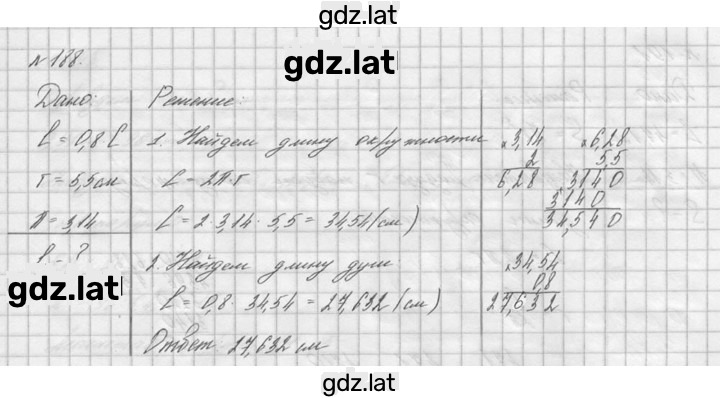 gdz.lat
№ 188.
gdz.lat
Дано: Решение:
l = 0,8 C 1. Найдем длину окружности
r = 5,5 см C = 2π·r
π = 3,14 C = 2 · 3,14 · 5,5 = 34,54 (см)
l - ? 2. Найдем длину дуги
gdz.lat
l = 0,8 · 34,54 = 27,632 (см)
Ответ 27,632 см
×3,14
2
6,28
×6,28
5,5
3140
3140
34,540
×34,54
0,8
27,632
gdz.lat